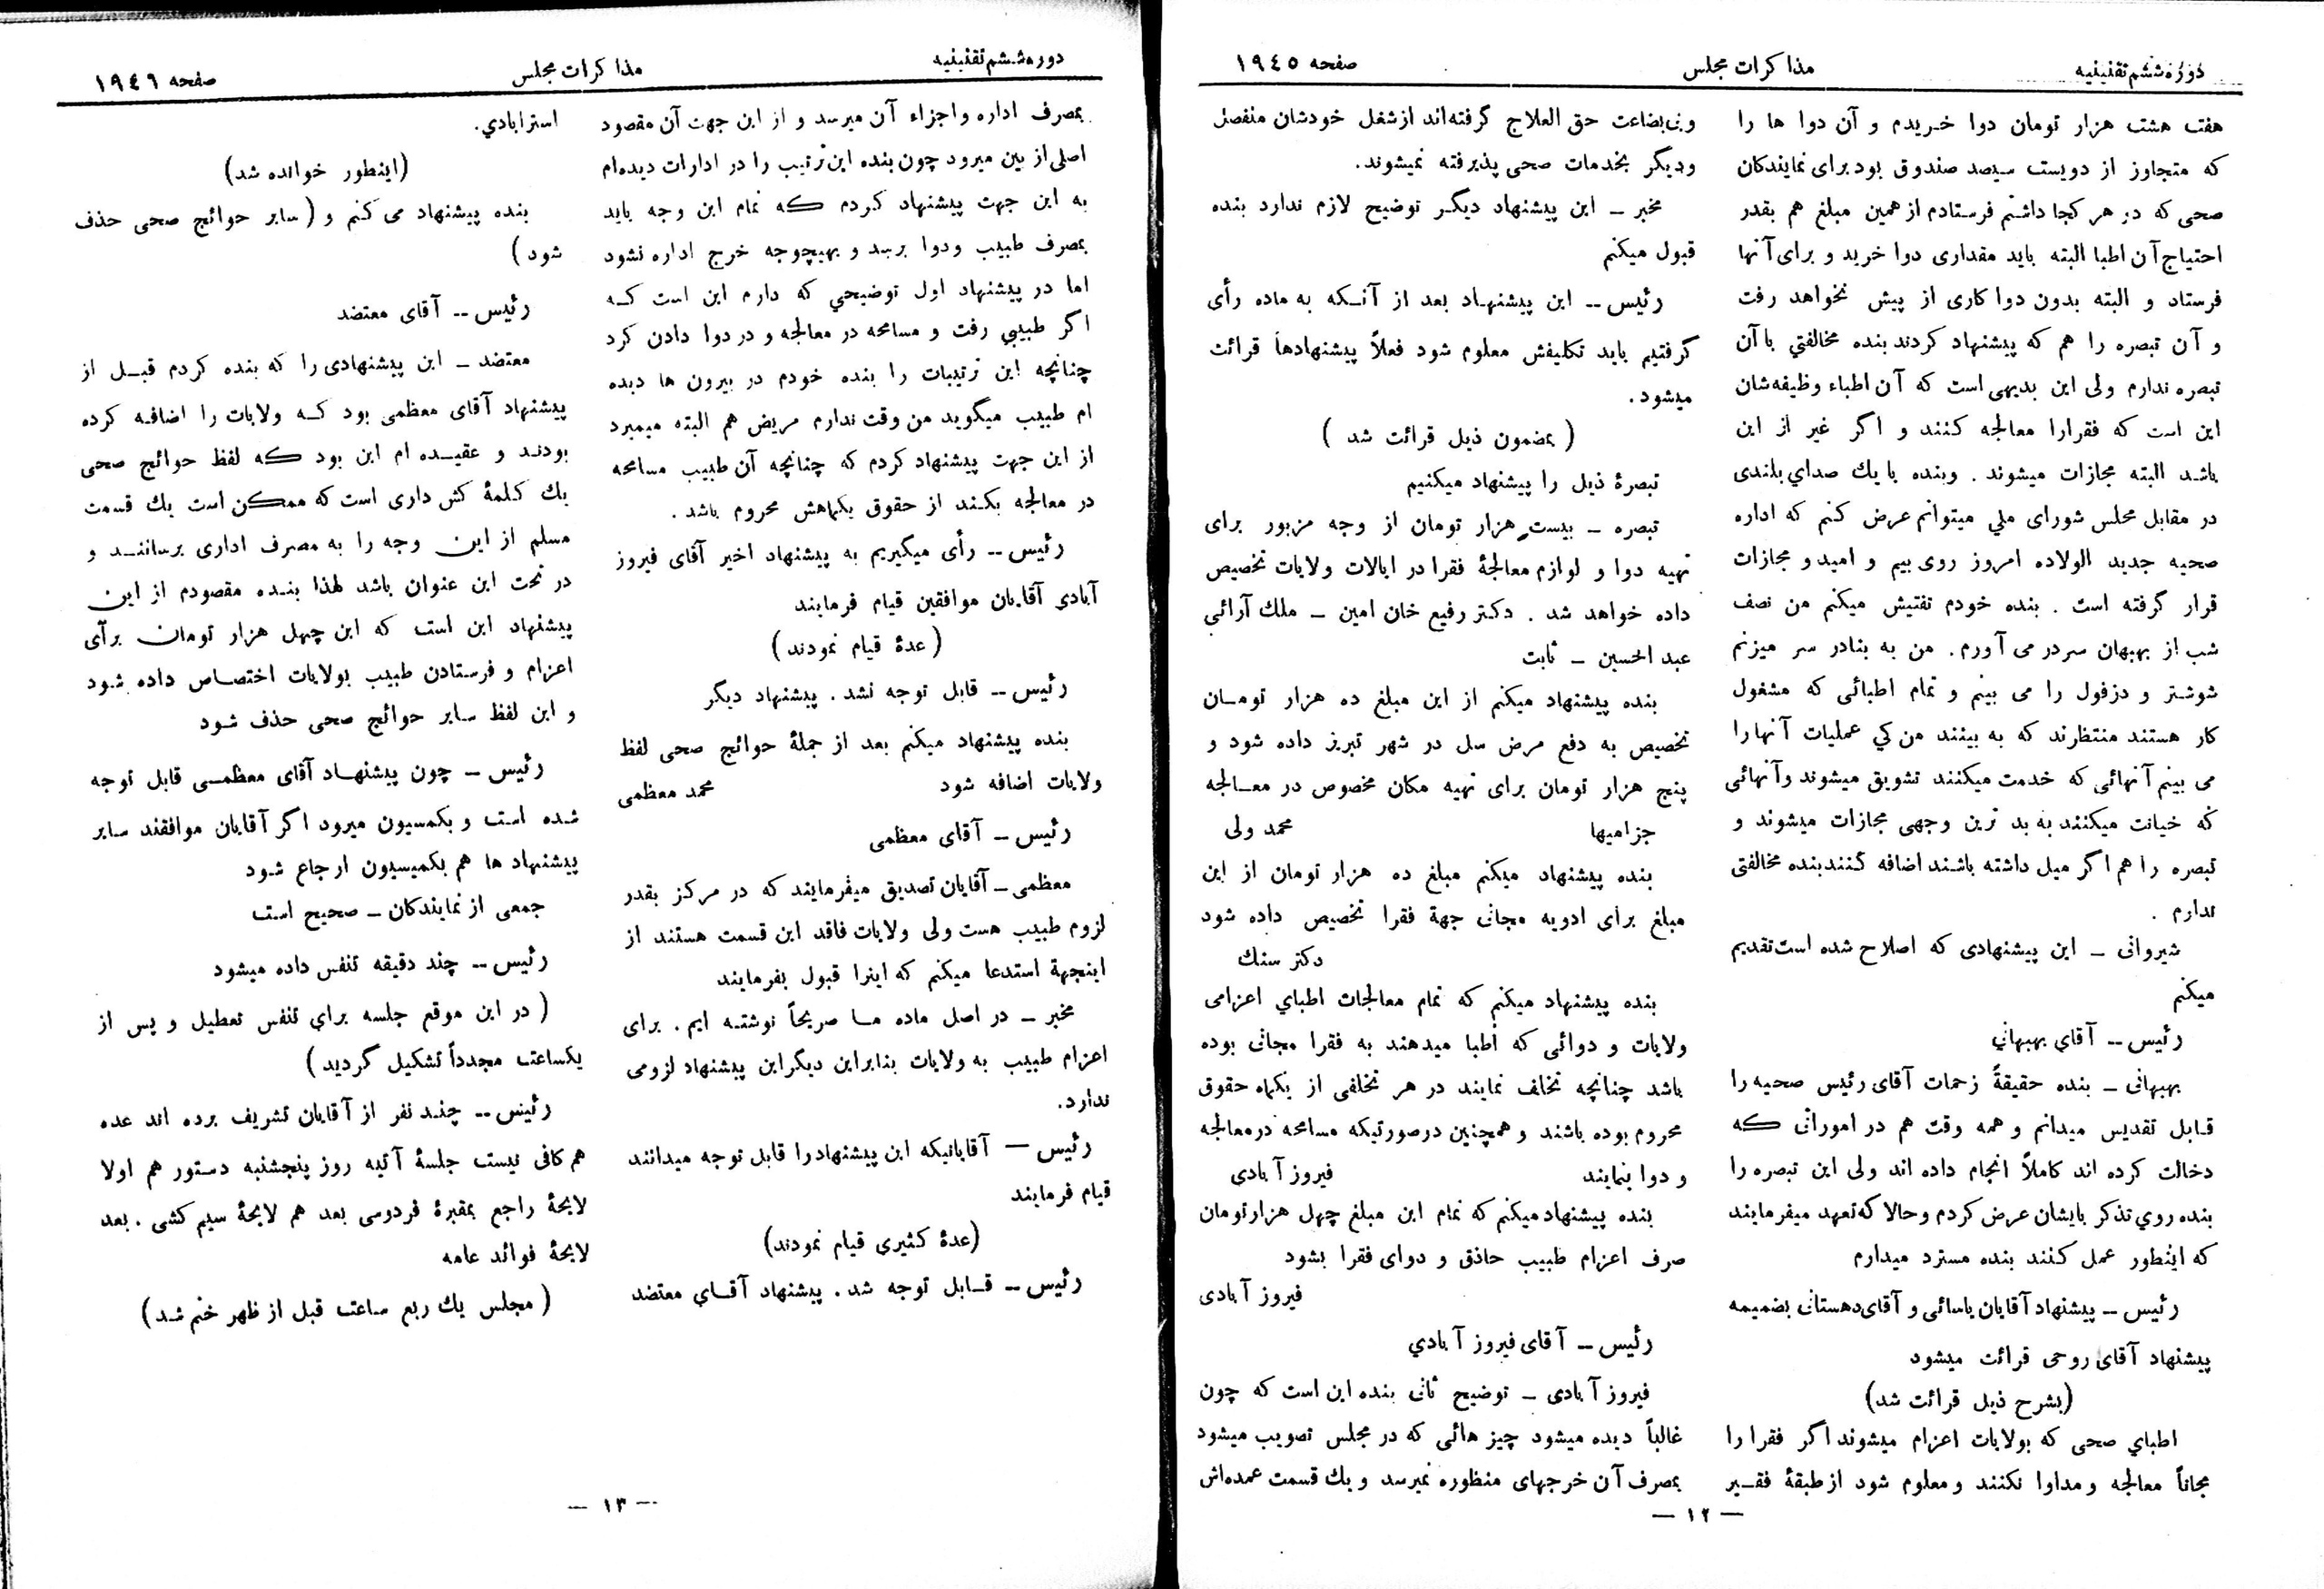 دورهٔ ششم تقنینیه
مذاکرات مجلس
صفحه ۱۹٤٥
هفت هشت هزار تومان دوا خریدم و آن دوا ها را
که متجاوز از دویست سیصد صندوق بود برای نمایندکان
صحی که در هر کجا داشتم فرستادم از همین مبلغ هم بقدر
احتیاج آن اطبا البته باید مقداری دوا خرید و برای آنها
فرستاد و البته بدون دوا کاری از پیش نخواهد رفت
و آن تبصره را هم که پیشنهاد کردند بنده مخالفتی با آن
تبصره ندارم ولی این بدیهی است که آن اطباء وظیفه‌شان
این است که فقرارا معالجه کنند و اگر غیر از این
باشد البته مجازات میشوند . وبنده با یك صدای بلندی
در مقابل مجلس شورای ملی میتوانم عرض کنم که اداره
صحیه جدید الولاده امروز روی بیم و امید و مجازات
قرار گرفته است . بنده خودم تفتیش میکنم من نصف
شب از بهبهان سردر می آورم. من به بنادر سر میزنم
شوشتر و دزفول را می بینم و تمام اطبائی که مشغول
کار هستند منتظرند که به بینند من کی عملیات آنهارا
می بینم آنهائی که خدمت میکنند تشویق میشوند وآنهائی
که خیانت میکنند به بد ترین وجهی مجازات میشوند و
تبصره را هم اگر میل داشته باشند اضافه کنند بنده مخالفتی
ندارم .
شیروانی ـ این پیشنهادی که اصلاح شده است تقدیم
میکنم
رئیس ــ آقای بهبهانی
بهبهانی ـ بنده حقیقةً زحمات آقای رئیس صحیه را
قابل تقدیس میدانم و همه وقت هم در اموراتی که
دخالت کرده اند کاملاً انجام داده اند ولی این تبصره را
بنده روی تذکر بایشان عرض کردم وحالا که تعهد میفرمایند
که اینطور عمل کنند بنده مسترد میدارم
رئیس ــ پیشنهاد آقایان یاسائی و آقای دهستانی بضمیمه
پیشنهاد آقای روحی قرائت میشود
(بشرح ذیل قرائت شد)
اطبای صحی که بولایات اعزام میشوند اگر فقرا را
مجاناً معالجه و مداوا نکنند و معلوم شود از طبقهٔ فقیر
وبی‌بضاعت حق العلاج گرفته‌اند ازشغل خودشان منفصل
ودیگر بخدمات صحی پذیرفته نمیشوند.
مخبر ـ این پیشنهاد دیگر توضیح لازم ندارد بنده
قبول میکنم
رئیس ــ این پیشنهاد بعد از آنکه به ماده رأی
گرفتیم باید تکلیفش معلوم شود فعلاً پیشنهادها قرائت
میشود.
( بمضمون ذیل قرائت شد )
تبصرهٔ ذیل را پیشنهاد میکنیم
تبصره ـ بیست هزار تومان از وجه مزبور برای
تهیه دوا و لوازم معالجهٔ فقرا در ایالات ولایات تخصیص
داده خواهد شد . دکتر رفیع خان امین ـ ملك آرائی
عبد الحسین ـ ثابت
بنده پیشنهاد میکنم از این مبلغ ده هزار تومان
تخصیص به دفع مرض سل در شهر تبریز داده شود و
پنج هزار تومان برای تهیه مکان مخصوص در معالجه
جزامیها محمد ولی
بنده پیشنهاد میکنم مبلغ ده هزار تومان از این
مبلغ برای ادویه مجانی جهة فقرا تخصیص داده شود
دکتر سنك
بنده پیشنهاد میکنم که تمام معالجات اطبای اعزامی
ولایات و دوائی که اطبا میدهند به فقرا مجانی بوده
باشد چنانچه تخلف نمایند در هر تخلفی از یکماه حقوق
محروم بوده باشند و همچنین درصورتیکه مسامحه درمعالجه
و دوا بنمایند فیروز آبادی
بنده پیشنهاد میکنم که تمام این مبلغ چهل هزارتومان
صرف اعزام طبیب حاذق و دوای فقرا بشود
فیروز آبادی
رئیس ــ آقای فیروز آبادی
فیروز آبادی ـ توضیح ثانی بنده این است که چون
غالباً دیده میشود چیز هائی که در مجلس تصویب میشود
بمصرف آن خرجهای منظوره نمیرسد و یك قسمت عمده‌اش
— ۱۲ —
دوره ششم تقنینیه
مذاکرات مجلس
صفحه ۱۹٤٦
بمصرف اداره واجزاء آن میرسد و از این جهت آن مقصود
اصلی از بین میرود چون بنده این ترتیب را در ادارات دیده‌ام
به این جهت پیشنهاد کردم که تمام این وجه باید
بمصرف طبیب ودوا برسد و بهیچوجه خرج اداره نشود
اما در پیشنهاد اول توضیحی که دارم این است که
اگر طبیبی رفت و مسامحه در معالجه و در دوا دادن کرد
چنانچه این ترتیبات را بنده خودم در بیرون ها دیده
ام طبیب میگوید من وقت ندارم مریض هم البته میمیرد
از این جهت پیشنهاد کردم که چنانچه آن طبیب مسامحه
در معالجه بکند از حقوق یکماهش محروم باشد .
رئیس ــ رأی میگیریم به پیشنهاد اخیر آقای فیروز
آبادی آقایان موافقین قیام فرمایند
(عدهٔ قیام نمودند)
رئیس ــ قابل توجه نشد . پیشنهاد دیگر
بنده پیشنهاد میکنم بعد از جملهٔ حوائج صحی لفظ
ولایات اضافه شود محمد معظمی
رئیس ــ آقای معظمی
معظمی ـ آقایان تصدیق میفرمایند که در مرکز بقدر
لزوم طبیب هست ولی ولایات فاقد این قسمت هستند از
اینجهة استدعا میکنم که اینرا قبول بفرمایند
مخبر ـ در اصل ماده ما صریحاً نوشته ایم . برای
اعزام طبیب به ولایات بنابراین دیگراین پیشنهاد لزومی
ندارد.
رئیس — آقایانیکه این پیشنهادرا قابل توجه میدانند
قیام فرمایند
(عدهٔ کثیری قیام نمودند)
رئیس ــ قابل توجه شد . پیشنهاد آقای معتضد
استرابادی.
(اینطور خوانده شد)
بنده پیشنهاد می کنم و (سایر حوائج صحی حذف
شود )
رئیس ــ آقای معتضد
معتضد ـ این پیشنهادی را که بنده کردم قبل از
پیشنهاد آقای معظمی بود که ولایات را اضافه کرده
بودند و عقیده ام این بود که لفظ حوائج صحی
یك کلمهٔ کش داری است که ممکن است یك قسمت
مسلم از این وجه را به مصرف اداری برسانند و
در تحت این عنوان باشد لهذا بنده مقصودم از این
پیشنهاد این است که این چهل هزار تومان برای
اعزام و فرستادن طبیب بولایات اختصاص داده شود
و این لفظ سایر حوائج صحی حذف شود
رئیس ــ چون پیشنهاد آقای معظمی قابل توجه
شده است و بکمسیون میرود اگر آقایان موافقند سایر
پیشنهاد ها هم بکمیسیون ارجاع شود
جمعی از نمایندکان ـ صحیح است
رئیس ــ چند دقیقه تنفس داده میشود
( در این موقع جلسه برای تنفس تعطیل و پس از
یکساعت مجدداً تشکیل گردید )
رئیس ــ چند نفر از آقایان تشریف برده اند عده
هم کافی نیست جلسهٔ آتیه روز پنجشنبه دستور هم اولا
لایحهٔ راجع بمقبرهٔ فردوسی بعد هم لایحهٔ سیم کشی . بعد
لایحهٔ فوائد عامه
( مجلس یك ربع ساعت قبل از ظهر ختم شد)
— ۱۳ —